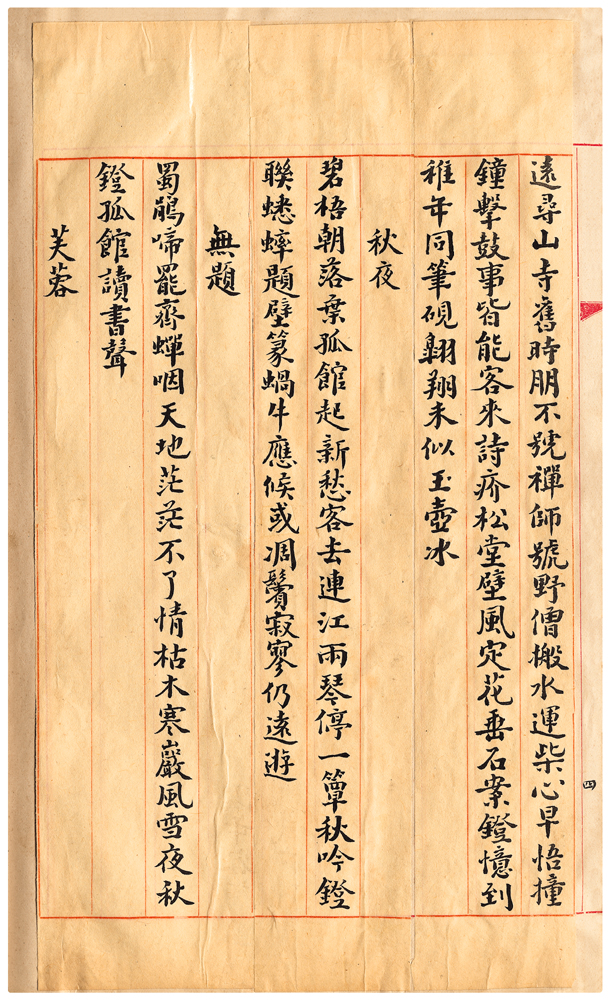 四
遠尋山寺舊時朋不號禪師號野僧搬水運柴心早悟撞
鐘擊鼓事皆能客來詩疥松堂壁風定花垂石案鐙憶到
稚年同筆硯翱翔未似玉壺冰
秋夜
碧梧朝落葉孤館起新愁客去連江雨琴停一簟秋吟鐙
聯蟋蟀題壁篆蝸牛應候或凋鬢寂寥仍遠遊
無題
蜀鵑啼罷齊蟬咽天地茫茫不了情枯木寒巖風雪夜秋
鐙孤館讀書聲
芙蓉